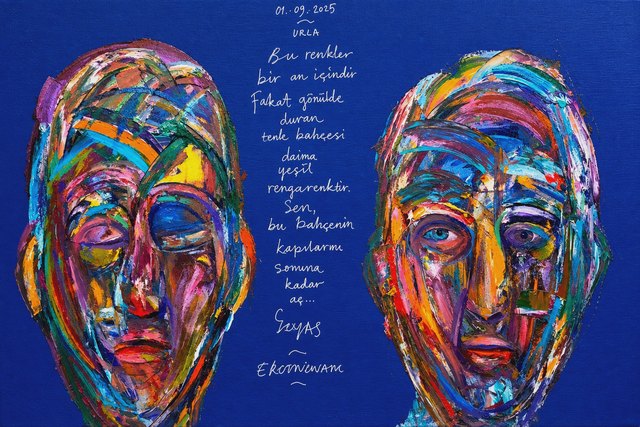 01.09.2025
URLA
Bu renkler
bir an içindir
Fakat gönülde
duran
tenk bahçesi
daima
yeşil
rengarenktir.
Sen,
bu bahçenin
kapılarını
sonuna
kadar
aç...